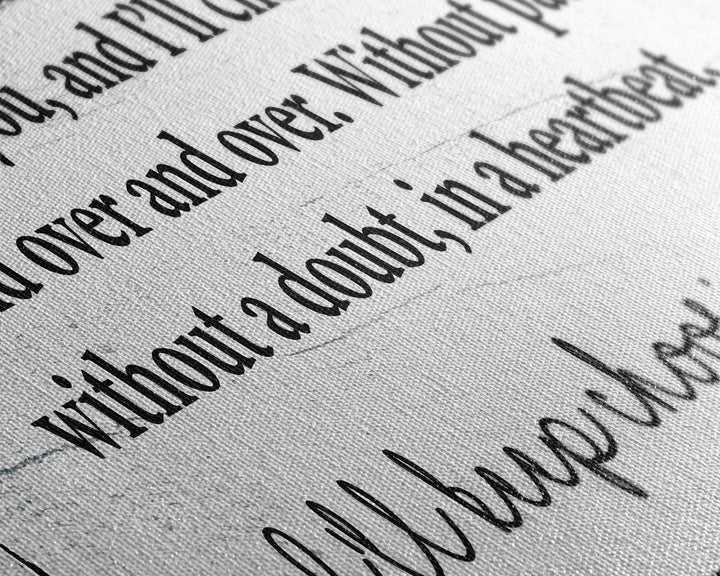 ou, and I'll ch
d over and over. Without pa
without a doubt, in a heartbeat,
I'll keep choosi